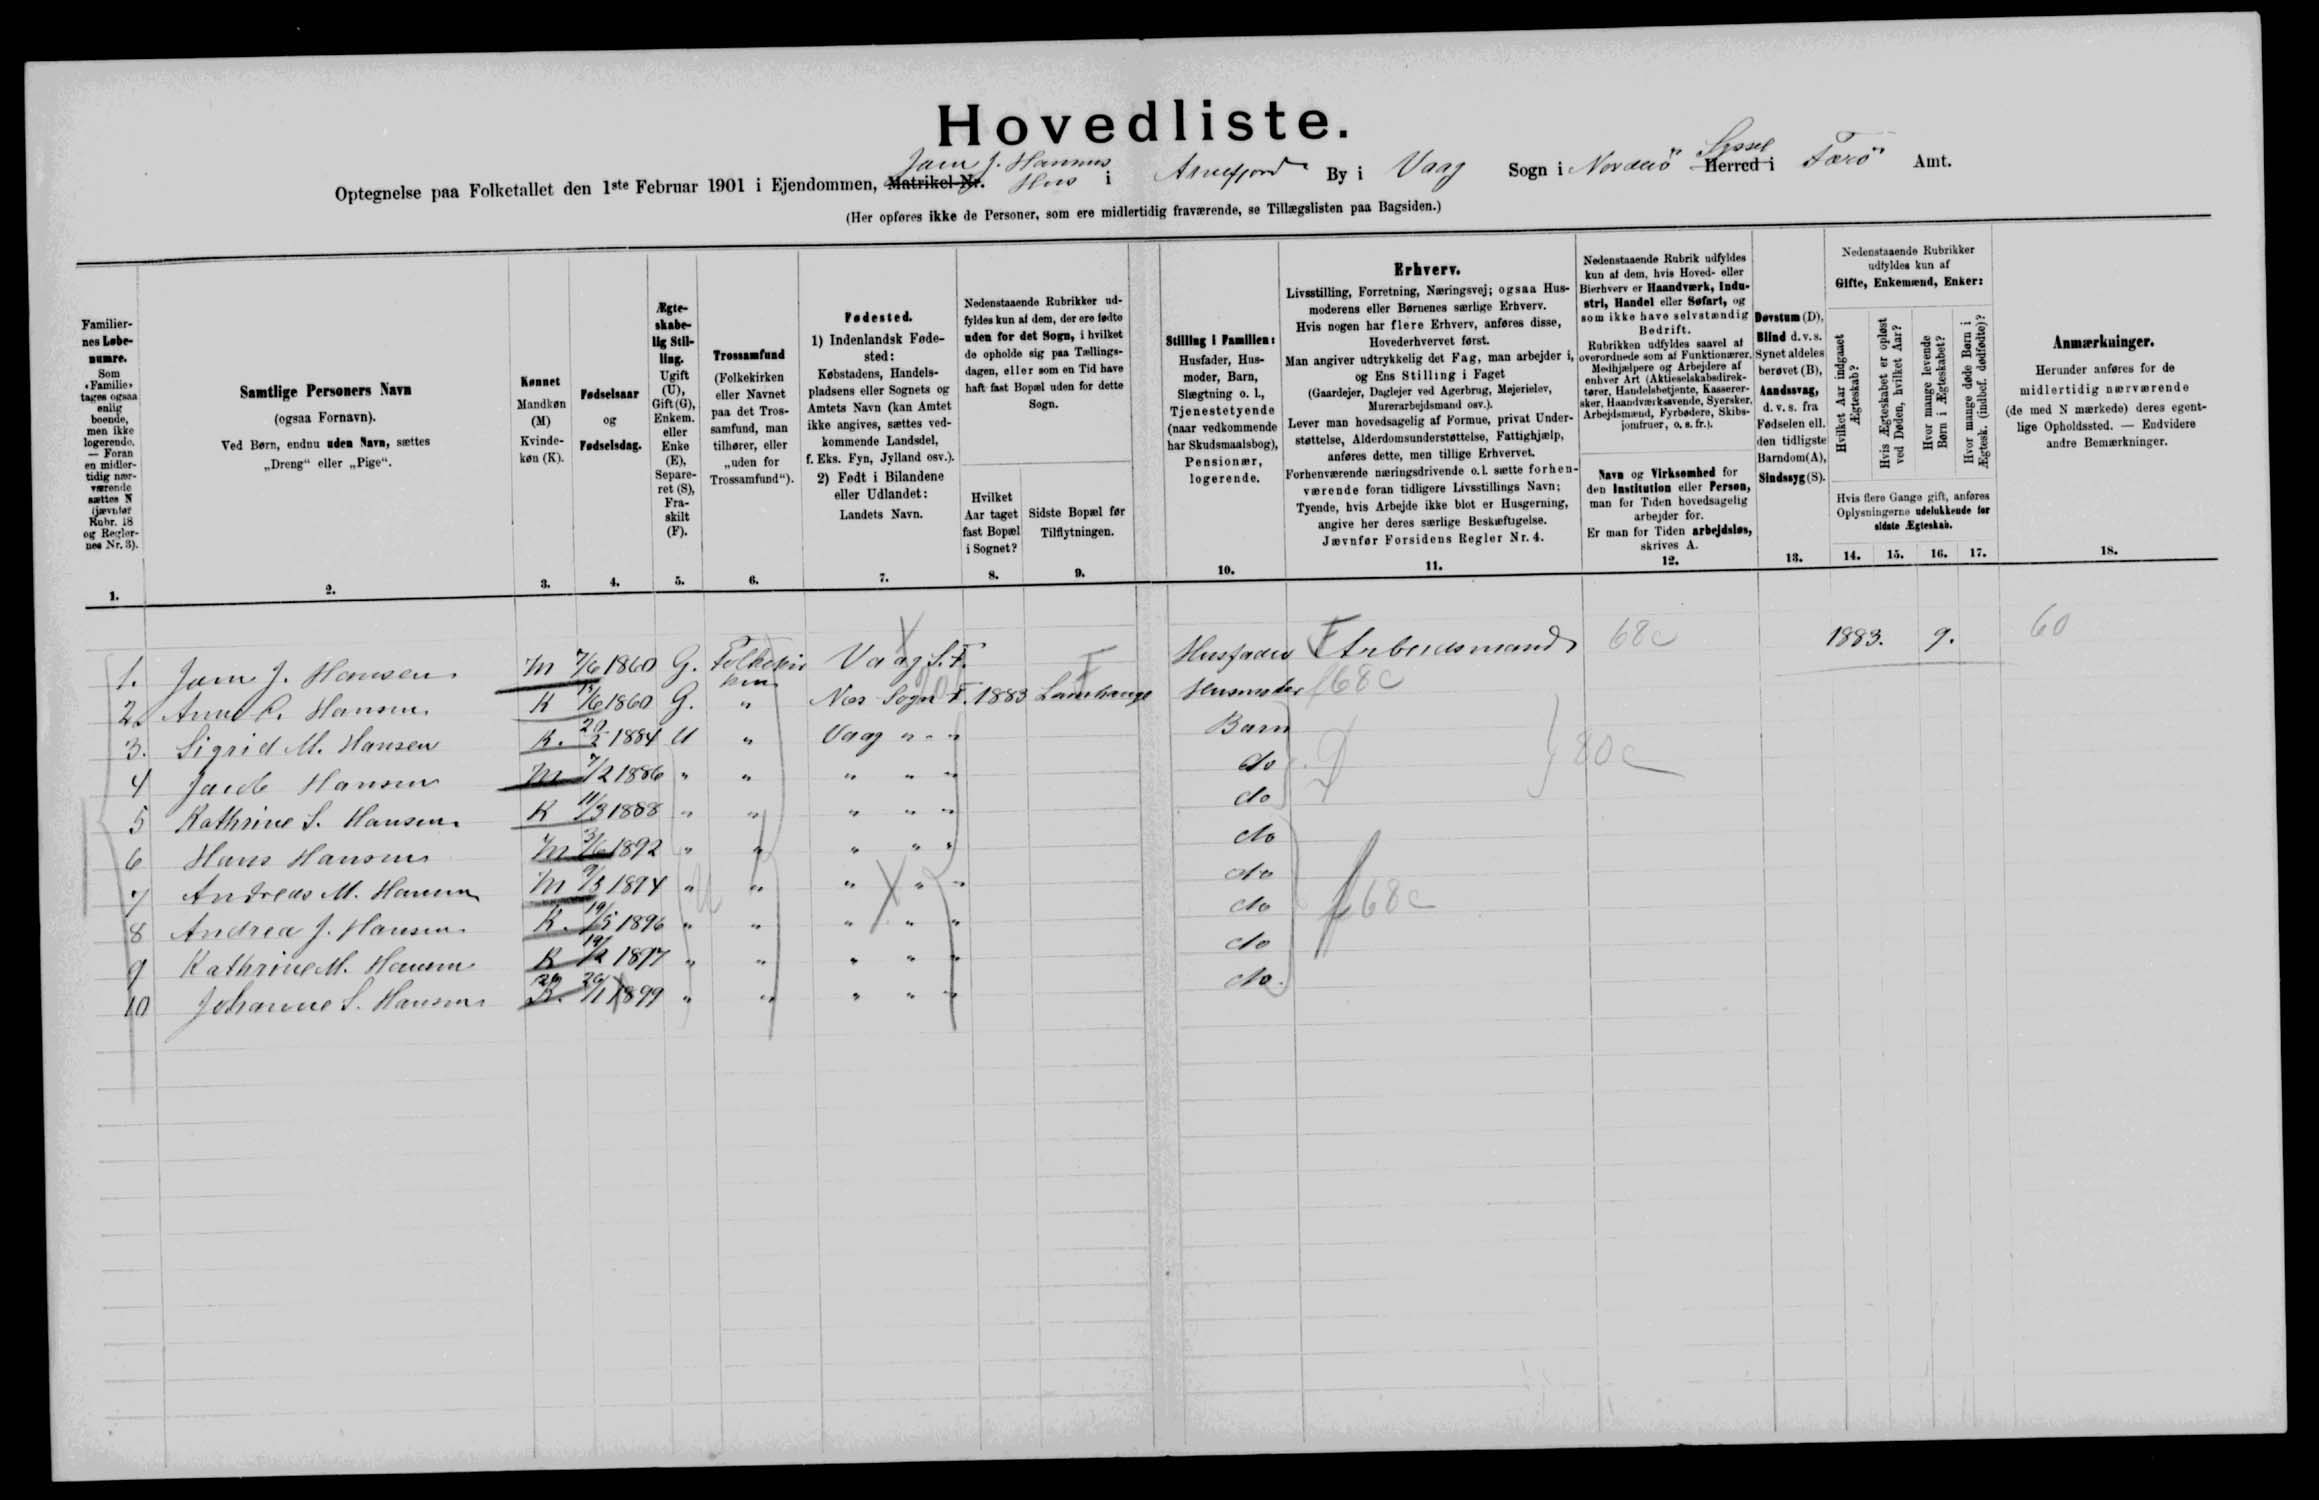 Hovedliste.
Optegnelse paa Folketallet den 1ste Februar 1901 i Ejendommen, Matrikel-Nr. Joen J. Hansens Hus i Arnefjord By i Vaag Sogn i Norderö Herred i Syssel Færö Amt.
(Her opføres ikke de Personer, som ere midlertidig fraværende, se Tillægslisten paa Bagsiden.)
Familiernes Løbenumre.
Som »Familie« tages ogsaa enlig boende, men ikke logerende. — Foran en midlertidig nærværende sættes N (jævnfør Rubr. 18 og Reglernes Nr. 3).
1.
Samtlige Personers Navn
(ogsaa Fornavn).
Ved Børn, endnu uden Navn, sættes
„Dreng“ eller „Pige“.
2.
Kønnet
Mandkøn (M)
Kvindekøn (K).
3.
Fødselsaar
og
Fødselsdag.
4.
Ægteskabelig Stilling.
Ugift (U), Gift (G), Enkem. eller Enke (E), Separeret (S), Fraskilt (F).
5.
Trossamfund
(Folkekirken eller Navnet paa det Trossamfund, man tilhører, eller „uden for Trossamfund“).
6.
Fødested.
1) Indenlandsk Fødested:
Købstadens, Handelspladsens eller Sognets og Amtets Navn (kan Amtet ikke angives, sættes vedkommende Landsdel, f. Eks. Fyn, Jylland osv.).
2) Født i Bilandene eller Udlandet:
Landets Navn.
7.
Nedenstaaende Rubrikker udfyldes kun af dem, der ere fødte uden for det Sogn, i hvilket de opholde sig paa Tællingsdagen, eller som en Tid have haft fast Bopæl uden for dette Sogn.
Hvilket Aar taget fast Bopæl i Sognet?
8.
Sidste Bopæl før Tilflytningen.
9.
Stilling i Familien:
Husfader, Husmoder, Barn, Slægtning o. l., Tjenestetyende (naar vedkommende har Skudsmaalsbog), Pensionær, logerende.
10.
Erhverv.
Livsstilling, Forretning, Næringsvej; ogsaa Husmoderens eller Børnenes særlige Erhverv.
Hvis nogen har flere Erhverv, anføres disse, Hovederhvervet først.
Man angiver udtrykkelig det Fag, man arbejder i, og Ens Stilling i Faget
(Gaardejer, Daglejer ved Agerbrug, Mejerielev, Murerarbejdsmand osv.).
Lever man hovedsagelig af Formue, privat Understøttelse, Alderdomsunderstøttelse, Fattighjælp, anføres dette, men tillige Erhvervet.
Forhenværende næringsdrivende o. l. sætte forhenværende foran tidligere Livsstillings Navn;
Tyende, hvis Arbejde ikke blot er Husgerning, angive her deres særlige Beskæftigelse.
Jævnfør Forsidens Regler Nr. 4.
11.
Nedenstaaende Rubrik udfyldes kun af dem, hvis Hoved- eller Bierhverv er Haandværk, Industri, Handel eller Søfart, og som ikke have selvstændig Bedrift.
Rubrikken udfyldes saavel af overordnede som af Funktionærer, Medhjælpere og Arbejdere af enhver Art (Aktieselskabsdirektører, Handelsbetjente, Kasserersker, Haandværkssvende, Syersker, Arbejdsmænd, Fyrbødere, Skibsjomfruer, o. s. fr.).
Navn og Virksomhed for den Institution eller Person, man for Tiden hovedsagelig arbejder for.
Er man for Tiden arbejdsløs, skrives A.
12.
Døvstum (D),
Blind d. v. s. Synet aldeles berøvet (B),
Aandssvag, d. v. s. fra Fødselen ell. den tidligste Barndom (A),
Sindssyg (S).
13.
Nedenstaaende Rubrikker udfyldes kun af
Gifte, Enkemænd, Enker:
Hvilket Aar indgaaet Ægteskab?
Hvis Ægteskabet er opløst ved Døden, hvilket Aar?
Hvor mange levende Børn i Ægteskabet?
Hvor mange døde Børn i Ægtesk. (indbef. dødfødte)?
Hvis flere Gange gift, anføres Oplysningerne udelukkende for sidste Ægteskab.
14. 15. 16. 17.
Anmærkninger.
Herunder anføres for de midlertidig nærværende (de med N mærkede) deres egentlige Opholdssted. — Endvidere andre Bemærkninger.
18.
1. Joen J. Hansen M 7/6 1860 G. Folkekirken Vaag S. F. Husfader F Arbeidsmand 68c 1883. 9. 60
2. Anne C. Hansen K 17/6 1860 G. " Nes Sogn F. 1883 Lamhauge F Husmoder f68c
3. Sigrid M. Hansen K. 20/2 1884 U " Vaag " " Barn
4 Jacob Hansen M 7/2 1886 " " " " " do D 80c
5 Kathrine S. Hansen K 11/3 1888 " " " " " do
6 Hans Hansen M 3/6 1892 " " " " " do
7 Andreas M. Hansen M 9/3 1894 " " " " " do
8 Andrea J. Hansen K. 19/5 1896 " " " " " do f 68c
9 Kathrine M. Hansen K 19/2 1897 " " " " " do
10 Johanne S. Hansen K. 26/11 1899 " " " " " do.